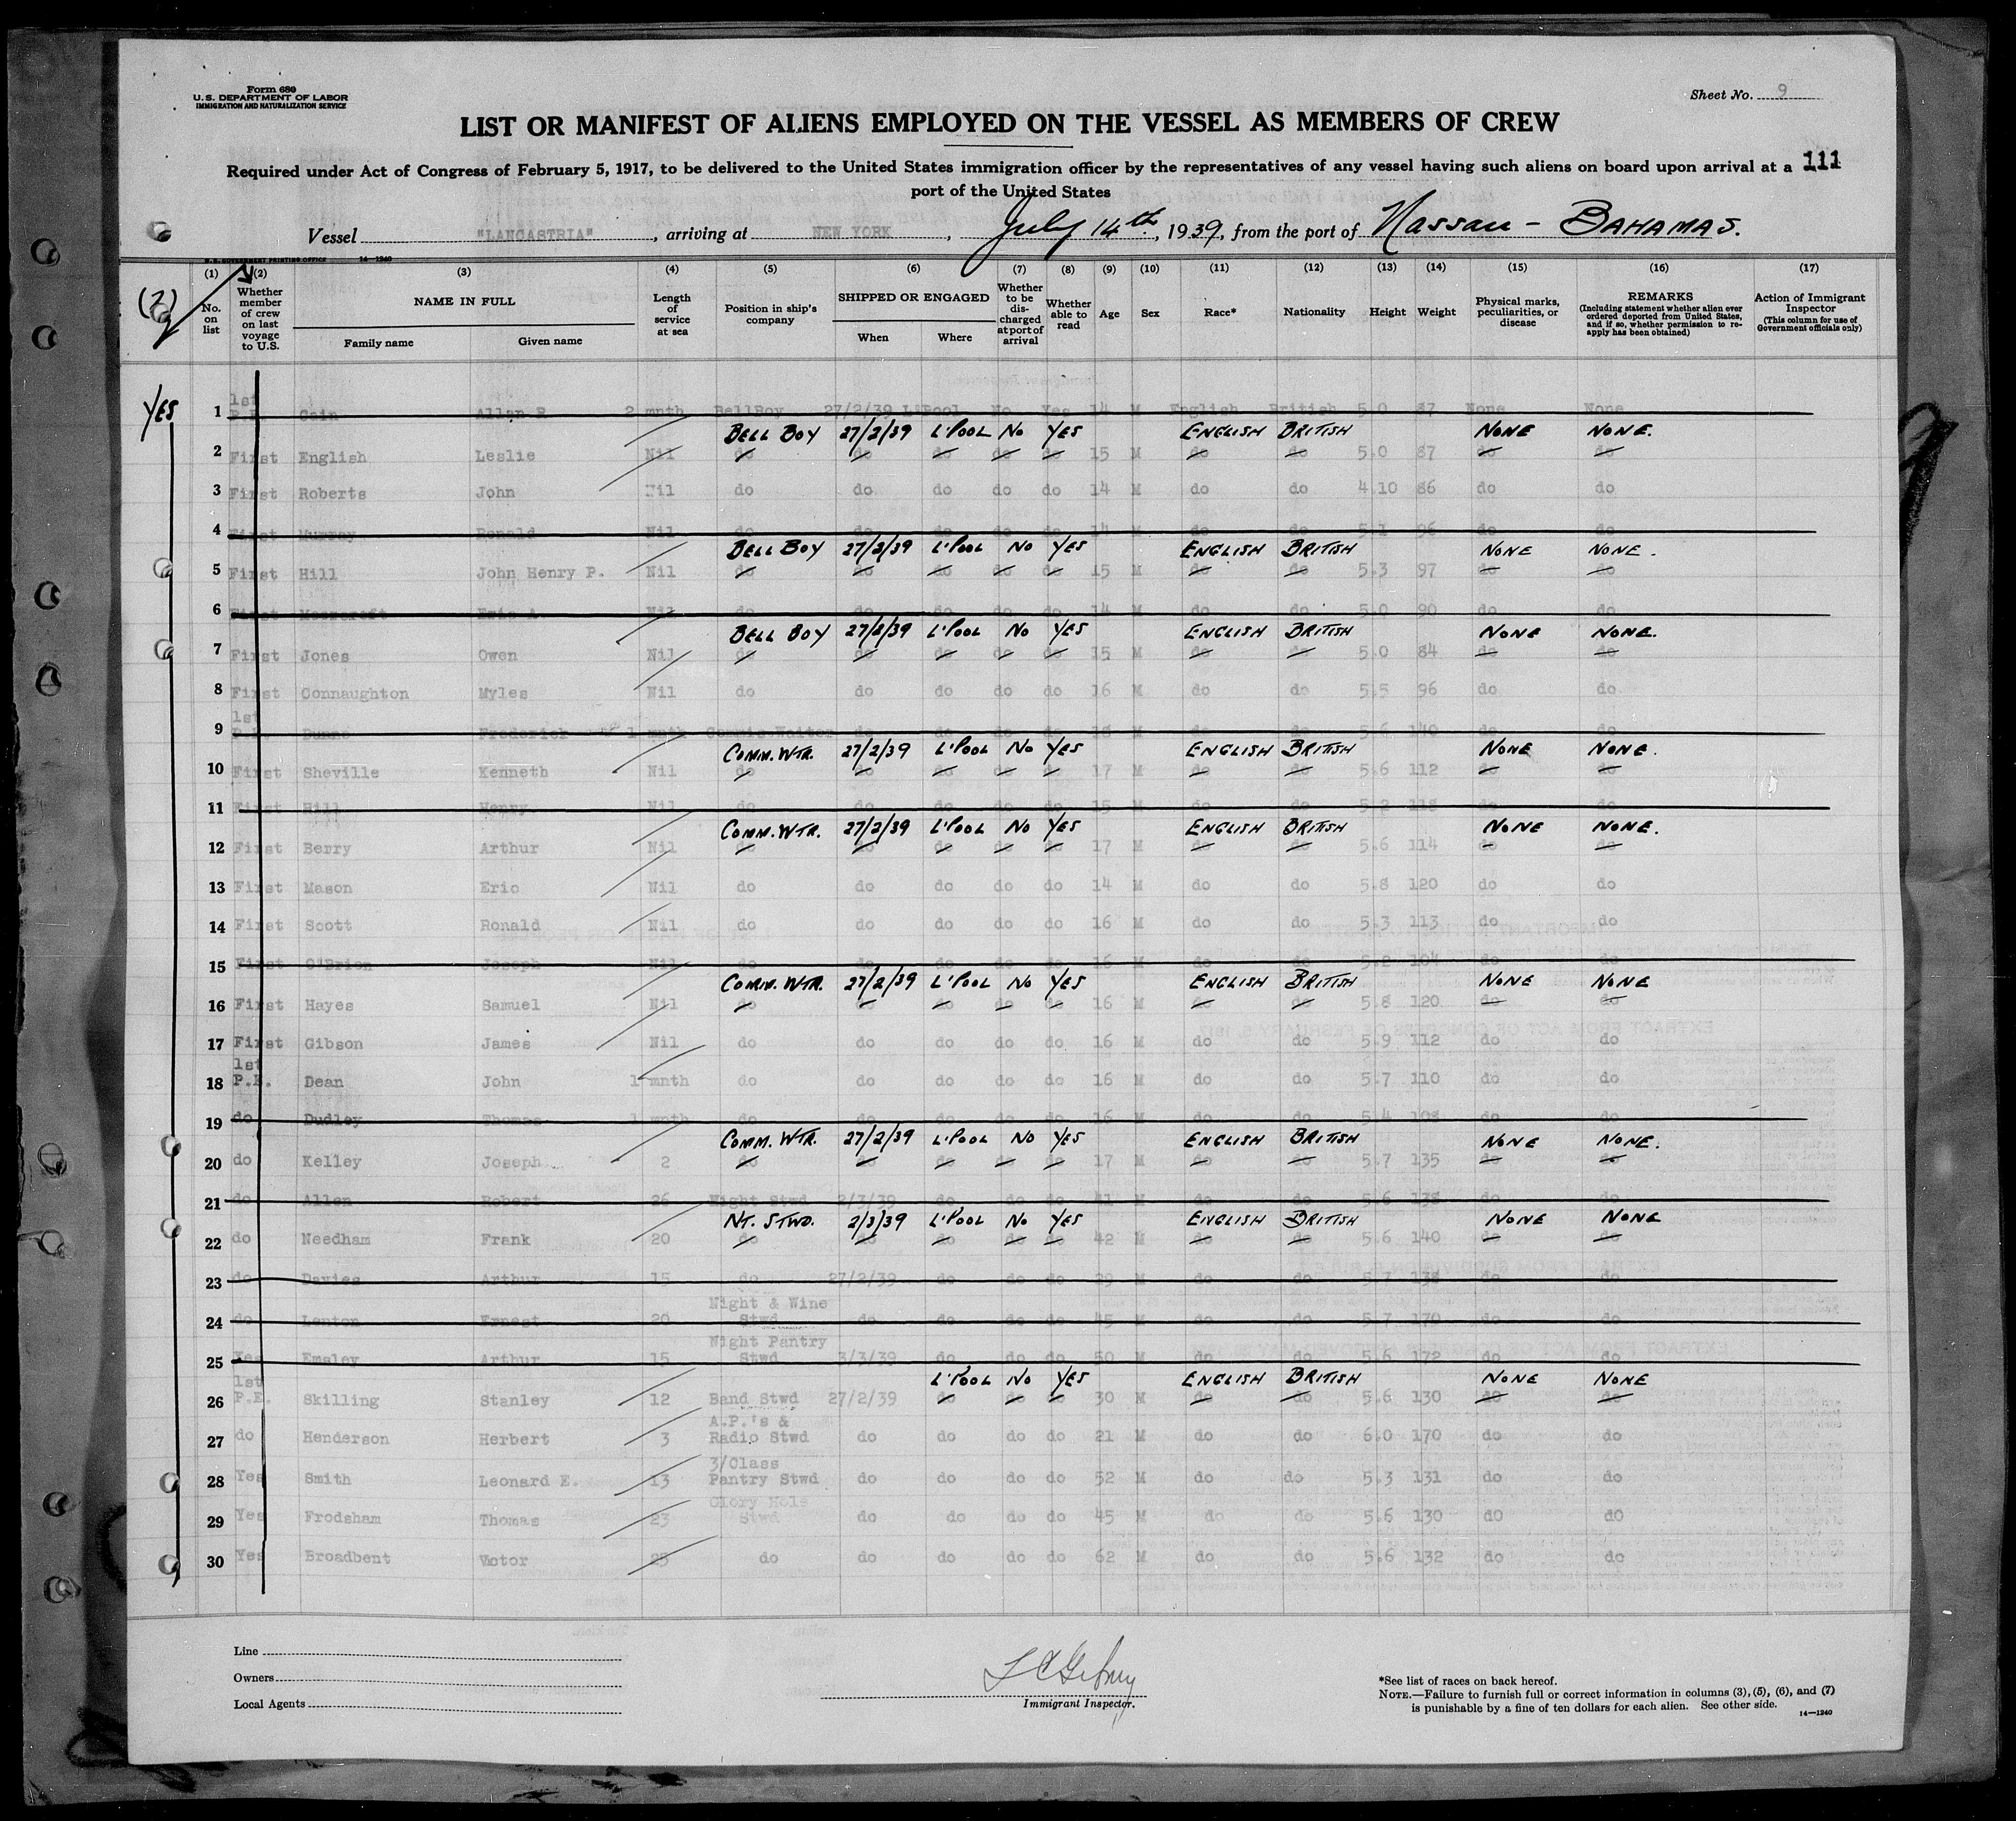 Form 680
U.S. DEPARTMENT OF LABOR
IMMIGRATION AND NATURALIZATION SERVICE
Sheet No. 9
LIST OR MANIFEST OF ALIENS EMPLOYED ON THE VESSEL AS MEMBERS OF CREW
Required under Act of Congress of February 5, 1917, to be delivered to the United States immigration officer by the representatives of any vessel having such aliens on board upon arrival at a 111
port of the United States
Vessel "LANCASTRIA", arriving at NEW YORK, July 14th, 1939, from the port of Nassau - BAHAMAS.
U.S. GOVERNMENT PRINTING OFFICE 14-1240
(1) (2) (3) (4) (5) (6) (7) (8) (9) (10) (11) (12) (13) (14) (15) (16) (17)
(2)
No. on list
Whether member of crew on last voyage to U.S.
NAME IN FULL
Family name Given name
Length of service at sea
Position in ship's company
SHIPPED OR ENGAGED
When Where
Whether to be discharged at port of arrival
Whether able to read
Age
Sex
Race*
Nationality
Height
Weight
Physical marks, peculiarities, or disease
REMARKS
(Including statement whether alien ever ordered deported from United States, and if so, whether permission to reapply has been obtained)
Action of Immigrant Inspector
(This column for use of Government officials only)
YES
1 1st P.E. Cain Allan R 2 mnth BellBoy 27/2/39 L'Pool No Yes 14 M English British 5.0 87 None None
BELL BOY 27/2/39 L'POOL NO YES ENGLISH BRITISH NONE NONE.
2 First English Leslie Nil do do do do do 15 M do do 5.0 87 do do
3 First Roberts John Nil do do do do do 14 M do do 4.10 86 do do
4 First Murray Ronald Nil do do do do do 14 M do do 5.1 96 do do
BELL BOY 27/2/39 L'POOL NO YES ENGLISH BRITISH NONE NONE.
5 First Hill John Henry P. Nil do do do do do 15 M do do 5.3 97 do do
6 First Moorcroft Eric A. Nil do do do do do 14 M do do 5.0 90 do do
BELL BOY 27/2/39 L'POOL NO YES ENGLISH BRITISH NONE NONE.
7 First Jones Owen Nil do do do do do 15 M do do 5.0 84 do do
8 First Connaughton Myles Nil do do do do do 16 M do do 5.5 96 do do
9 1st P.E. Frederick 1 mnth Commis.Waiter do do do do 18 M do do 5.6 140 do do
COMM. WTR. 27/2/39 L'POOL NO YES ENGLISH BRITISH NONE NONE.
10 First Sheville Kenneth Nil do do do do do 17 M do do 5.6 112 do do
11 First Hill Henry Nil do do do do do 15 M do do 5.2 118 do do
COMM. WTR. 27/2/39 L'POOL NO YES ENGLISH BRITISH NONE NONE.
12 First Berry Arthur Nil do do do do do 17 M do do 5.6 114 do do
13 First Mason Eric Nil do do do do do 14 M do do 5.8 120 do do
14 First Scott Ronald Nil do do do do do 16 M do do 5.3 113 do do
15 First O'Brien Joseph Nil do do do do do 16 M do do 5.2 104 do do
COMM. WTR. 27/2/39 L'POOL NO YES ENGLISH BRITISH NONE NONE
16 First Hayes Samuel Nil do do do do do 16 M do do 5.8 120 do do
17 First Gibson James Nil do do do do do 16 M do do 5.9 112 do do
18 1st P.E. Dean John 1 mnth do do do do do 16 M do do 5.7 110 do do
19 do Dudley Thomas 1 mnth do do do do do 16 M do do 5.4 108 do do
COMM. WTR. 27/2/39 L'POOL NO YES ENGLISH BRITISH NONE NONE.
20 do Kelley Joseph 2 do do do do do 17 M do do 5.7 135 do do
21 do Allen Robert 26 Night Stwd 2/3/39 do do do 41 M do do 5.6 138 do do
NT. STWD. 2/3/39 L'POOL NO YES ENGLISH BRITISH NONE NONE
22 do Needham Frank 20 do do do do do 42 M do do 5.6 140 do do
23 do Davies Arthur 15 do 27/2/39 do do do 29 M do do 5.7 138 do do
24 do Ernest 20 Night & Wine Stwd do do do do 45 M do do 5.7 170 do do
25 Yes Emsley Arthur 15 Night Pantry Stwd 3/3/39 do do do 50 M do do 5.6 172 do do
L'POOL NO YES ENGLISH BRITISH NONE NONE
26 1st P.E. Skilling Stanley 12 Band Stwd 27/2/39 do do do 30 M do do 5.6 130 do do
27 do Henderson Herbert 3 A.P.'s & Radio Stwd do do do do 21 M do do 6.0 170 do do
28 Yes Smith Leonard E. 13 3/Class Pantry Stwd do do do do 52 M do do 5.3 131 do do
29 Yes Frodsham Thomas 23 Glory Hole Stwd do do do do 45 M do do 5.6 130 do do
30 Yes Broadbent Victor 25 do do do do do 62 M do do 5.6 132 do do
Line
Owners
Local Agents
Immigrant Inspector.
*See list of races on back hereof.
NOTE.—Failure to furnish full or correct information in columns (3), (5), (6), and (7)
is punishable by a fine of ten dollars for each alien. See other side.
14-1240